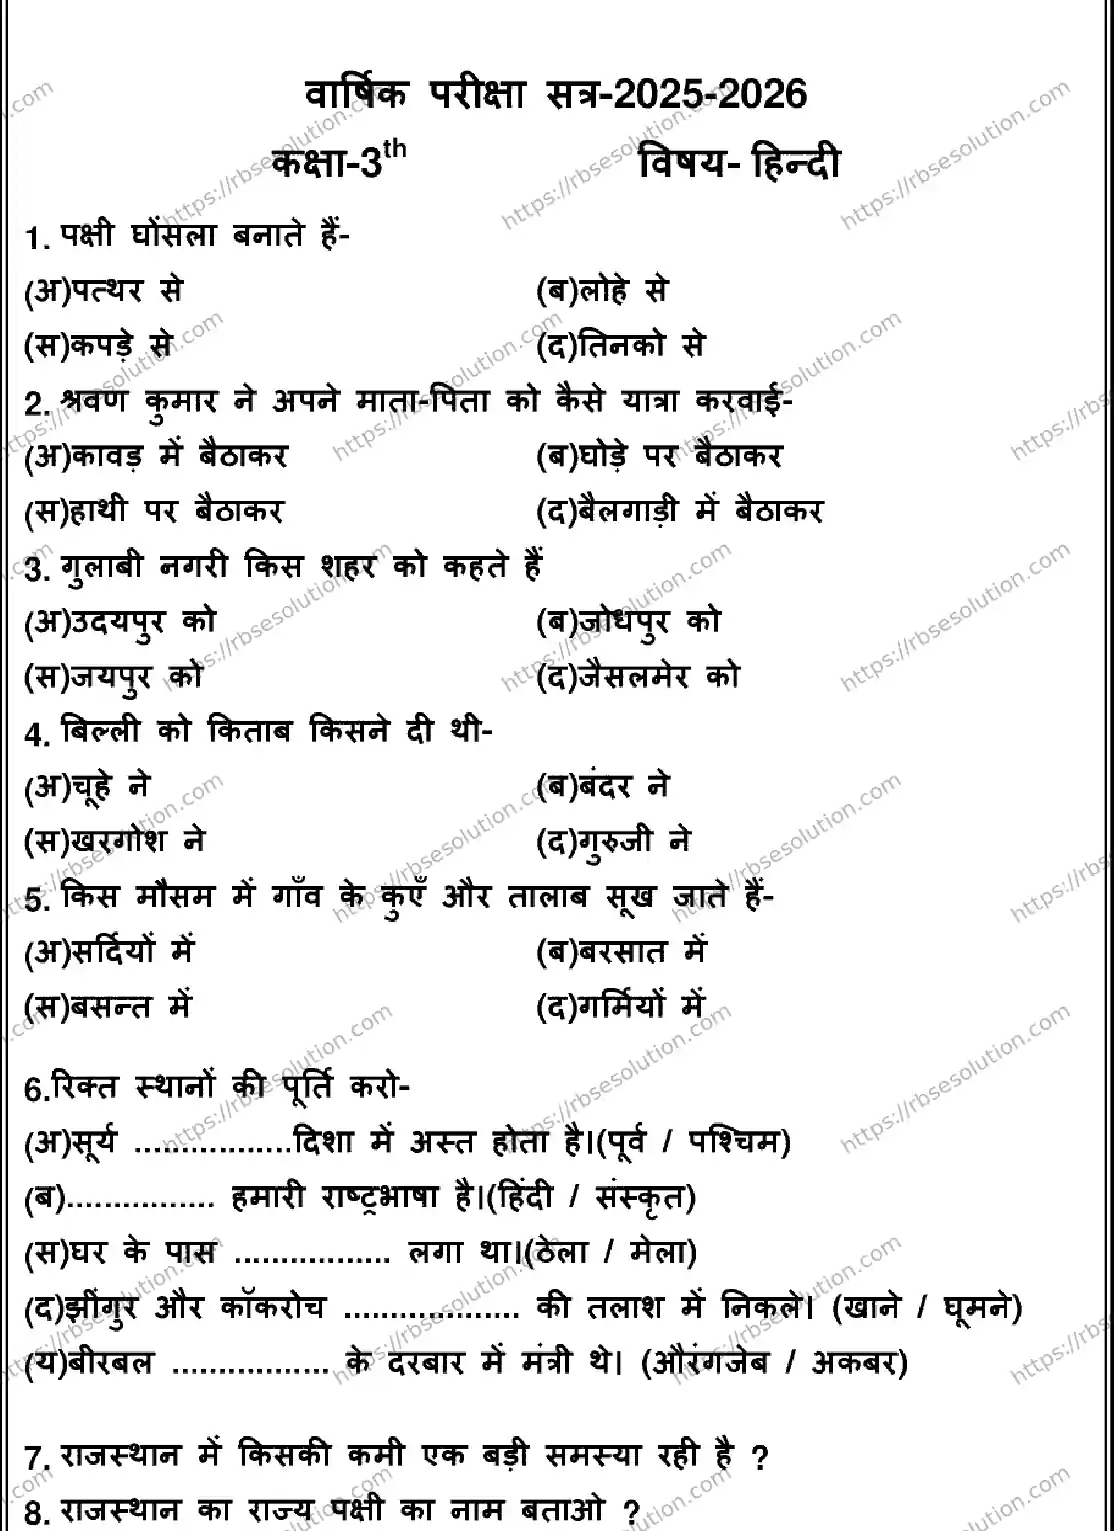 वार्षिक परीक्षा सत्र-2025-2026
कक्षा-3th विषय- हिन्दी
1. पक्षी घोंसला बनाते हैं-
(अ)पत्थर से (ब)लोहे से
(स)कपड़े से (द)तिनको से
2. श्रवण कुमार ने अपने माता-पिता को कैसे यात्रा करवाई-
(अ)कावड़ में बैठाकर (ब)घोड़े पर बैठाकर
(स)हाथी पर बैठाकर (द)बैलगाड़ी में बैठाकर
3. गुलाबी नगरी किस शहर को कहते हैं
(अ)उदयपुर को (ब)जोधपुर को
(स)जयपुर को (द)जैसलमेर को
4. बिल्ली को किताब किसने दी थी-
(अ)चूहे ने (ब)बंदर ने
(स)खरगोश ने (द)गुरुजी ने
5. किस मौसम में गाँव के कुएँ और तालाब सूख जाते हैं-
(अ)सर्दियों में (ब)बरसात में
(स)बसन्त में (द)गर्मियों में
6.रिक्त स्थानों की पूर्ति करो-
(अ)सूर्य .................दिशा में अस्त होता है।(पूर्व / पश्चिम)
(ब)................ हमारी राष्ट्रभाषा है।(हिंदी / संस्कृत)
(स)घर के पास ................. लगा था।(ठेला / मेला)
(द)झींगुर और कॉकरोच ................... की तलाश में निकले। (खाने / घूमने)
(य)बीरबल ................. के दरबार में मंत्री थे। (औरंगजेब / अकबर)
7. राजस्थान में किसकी कमी एक बड़ी समस्या रही है ?
8. राजस्थान का राज्य पक्षी का नाम बताओ ?
https://rbsesolution.com